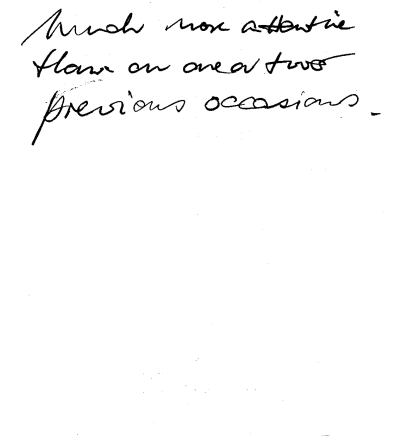 Much more attentive
than on one or two
previous occasions.